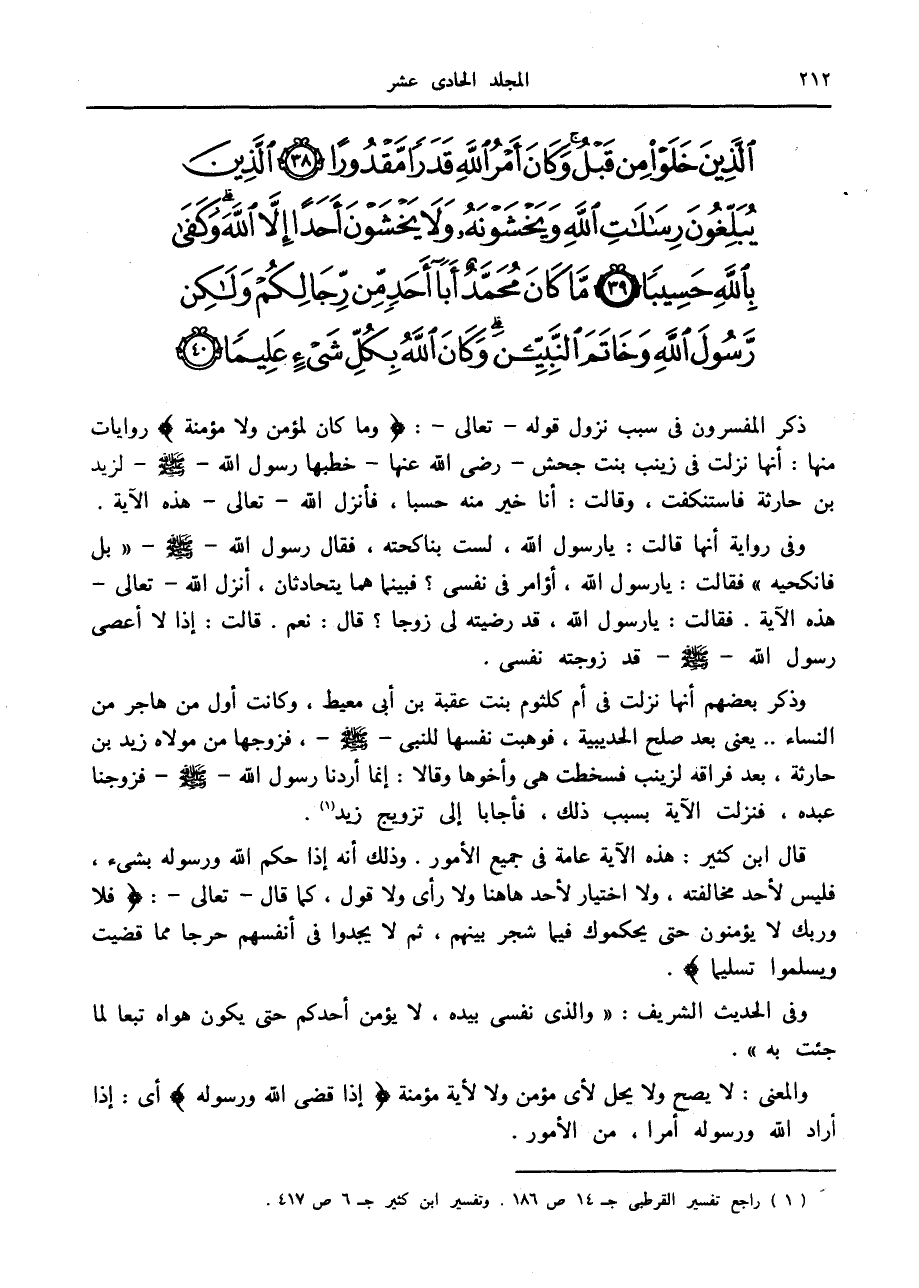 ٢١٢ المجلد الحادى عشر
ٱلَّذِينَ خَلَوْا۟ مِن قَبْلُ ۚ وَكَانَ أَمْرُ ٱللَّهِ قَدَرًا مَّقْدُورًا ﴿٣٨﴾ ٱلَّذِينَ
يُبَلِّغُونَ رِسَـٰلَـٰتِ ٱللَّهِ وَيَخْشَوْنَهُۥ وَلَا يَخْشَوْنَ أَحَدًا إِلَّا ٱللَّهَ ۗ وَكَفَىٰ
بِٱللَّهِ حَسِيبًا ﴿٣٩﴾ مَّا كَانَ مُحَمَّدٌ أَبَآ أَحَدٍ مِّن رِّجَالِكُمْ وَلَـٰكِن
رَّسُولَ ٱللَّهِ وَخَاتَمَ ٱلنَّبِيِّـۧنَ ۗ وَكَانَ ٱللَّهُ بِكُلِّ شَىْءٍ عَلِيمًا ﴿٤٠﴾
ذكر المفسرون فى سبب نزول قوله – تعالى – : ﴿ وما كان لمؤمن ولا مؤمنة ﴾ روايات
منها : أنها نزلت فى زينب بنت جحش – رضى الله عنها – خطبها رسول الله – ﷺ – لزيد
بن حارثة فاستنكفت ، وقالت : أنا خير منه حسبا ، فأنزل الله – تعالى – هذه الآية .
وفى رواية أنها قالت : يارسول الله ، لست بناكحته ، فقال رسول الله – ﷺ – « بل
فانكحيه » فقالت : يارسول الله ، أؤامر فى نفسى ؟ فبينما هما يتحادثان ، أنزل الله – تعالى –
هذه الآية . فقالت : يارسول الله ، قد رضيته لى زوجا ؟ قال : نعم . قالت : إذا لا أعصى
رسول الله – ﷺ – قد زوجته نفسى .
وذكر بعضهم أنها نزلت فى أم كلثوم بنت عقبة بن أبى معيط ، وكانت أول من هاجر من
النساء .. يعنى بعد صلح الحديبية ، فوهبت نفسها للنبى – ﷺ – ، فزوجها من مولاه زيد بن
حارثة ، بعد فراقه لزينب فسخطت هى وأخوها وقالا : إنما أردنا رسول الله – ﷺ – فزوجنا
عبده ، فنزلت الآية بسبب ذلك ، فأجابا إلى تزويج زيد(١) .
قال ابن كثير : هذه الآية عامة فى جميع الأمور . وذلك أنه إذا حكم الله ورسوله بشىء ،
فليس لأحد مخالفته ، ولا اختيار لأحد هاهنا ولا رأى ولا قول ، كما قال – تعالى – : ﴿ فلا
وربك لا يؤمنون حتى يحكموك فيما شجر بينهم ، ثم لا يجدوا فى أنفسهم حرجا مما قضيت
ويسلموا تسليما ﴾ .
وفى الحديث الشريف : « والذى نفسى بيده ، لا يؤمن أحدكم حتى يكون هواه تبعا لما
جئت به » .
والمعنى : لا يصح ولا يحل لأى مؤمن ولا لأية مؤمنة ﴿ إذا قضى الله ورسوله ﴾ أى : إذا
أراد الله ورسوله أمرا ، من الأمور .
( ١ ) راجع تفسير القرطبى جـ ١٤ ص ١٨٦ . وتفسير ابن كثير جـ ٦ ص ٤١٧ .